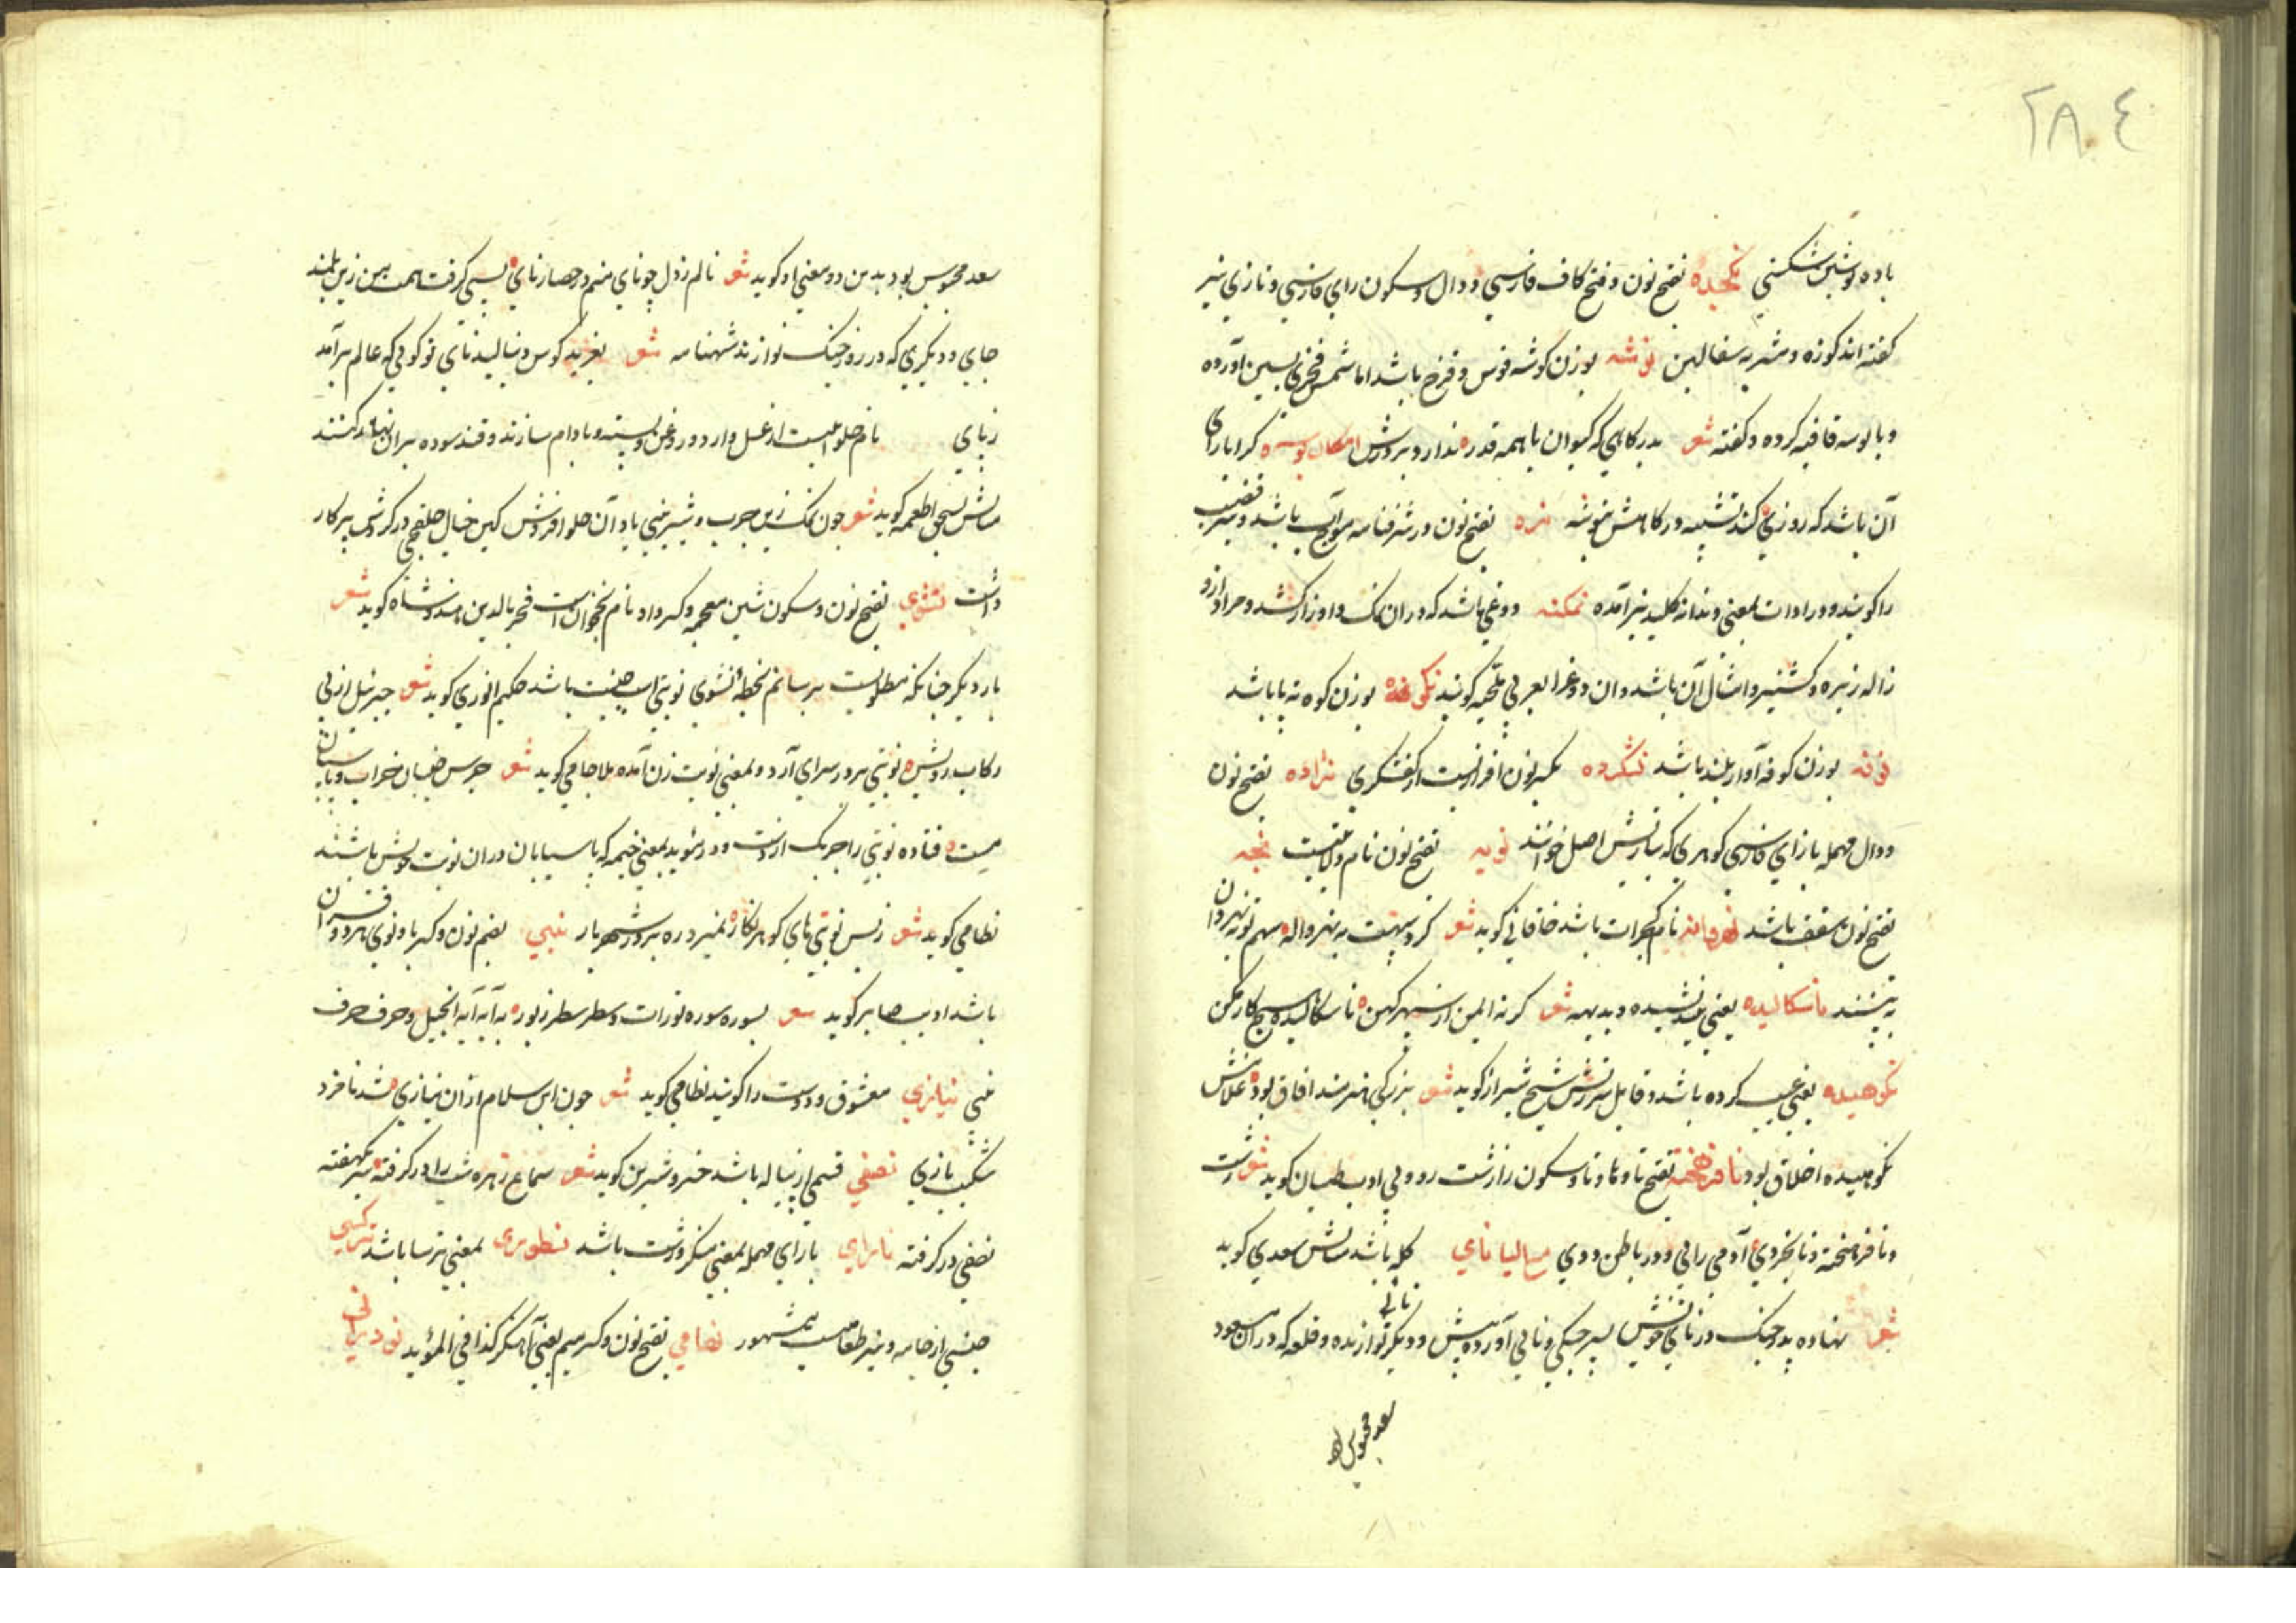 ٢٨٤
باده نوشین شکنی نکجیده بفتح نون و فتح کاف فارسی و دال و سکون رای فارسی و تازی نیز
کفته اند کوزه و مشربه سفالین نوشه بوزن کوشه قوس و قزح باشد اما شمس فخری بسین آورده
و با بوسه قافیه کرده و کفته شعر بدرکاهی که کیوان با همه قدر ندارد بر درش امکان بوسه کرا یارای
آن باشد که روزی کند تشبیه درکاهش بنوسه نره بفتح نون در شرفنامه موج آب باشد و نیز قضیب
را کویند و در ادات بمعنی دندانه کلید نیز آمده نمکنه دوغی باشد که در ان نمک و اوزار کشد و مراد از اوزار
زاله زیره و کشنیز و امثال آن باشد و ان دوغ را بعربی ملحیه کویند بوزن کوه نه پا باشد
نوفه بوزن کوفه آواز بلند باشد نشکرده بکسر نون افزاریست از کفشکری نژاده بفتح نون
و دال مهمله با زای فارسی کوهری که بنازش اصل خوانند نوبه بفتح نون نام ولایتیست
بفتح نون سقف باشد نهرواله نام کجرات باشد خاقانی کوید شعر به نهرواله و سهم تو نهروان
ناسکالیده یعنی نیندیشیده و بدیهه شعر کر نه ایمن از سپهر کهن ناسکالیده هیچ کار مکن
نکوهیده یعنی عیب کرده باشد و قابل سرزنش شیخ شیراز کوید شعر بزرکی هنرمند افاق بود غلامش
نکوهیده اخلاق بود نافرهخته بفتح تا و ها و تا و سکون را زشت رو و بی ادب طیان کوید شعر زشت
و نافرهخته و نابخردی آدمی رائی و در باطن ددی نای کله باشد مثالش سعدی کوید
شعر نهاده پدر چنک در نای خویش پسر چنکی و نائی آورده پیش و دیکر نائی نوازنده و قلعه که در ان مسعود
سعد محبوس بود
سعد محبوس بود بدین دو معنی او کوید شعر نالم ز دل چو نای من در حصار نای پستی کرفت همت من زین بلند
جای و دیکری که در روز جنک نوازند شهنامه شعر بغرید کوس و بنالید نای تو کوئی که عالم بر آمد
ز پای نام حلوائیست از عسل و ارد و روغن و پسته و بادام سازند و قند سوده بر ان کنند
مثالش بسحق اطعمه کوید شعر چون نمک زین چرب و شیرینی یاد آن حلوا فروش کین خیال حلقچی در کردش پرکار
داشت نشوی بفتح نون و سکون شین معجمه و کسر واو نام نخجوان است فخر الدین هندوشاه کوید شعر
بار دیکر چنانکه مطلوبست برسانم بخطه نشوی نوبتی اسب جنیبت باشد حکیم انوری کوید شعر جبرئیل از پی
رکاب رویش نوبتی بر در سرای آرد و بمعنی نوبت زن آمده ملا جامی کوید شعر جرس جنبان خراب و پاسبان
مست فتاده نوبتی را چوبک از دست و در مؤید بمعنی خیمه که پاسبابان دران نوبت خویش باشند
نظامی کوید شعر ز بس نوبتی های کوهر نکار نمیزد ره بر در شهریار نبی بضم نون و کسر با و نوی هر دو قران
باشد ادیب صابر کوید شعر بسوره سوره تورات و سطر سطر زبور به آیه آیه انجیل و حرف حرف
نبی نیازی معشوق و دوست را کویند نظامی کوید شعر چون این سلام از ان نیازی شد نامزد
شکیب بازی نصفی قسمی از پیاله باشد خسرو شیرین کوید شعر سماع زهره شب را در کرفته مه یکهفته
نصفی در کرفته نارای با رای مهمله بمعنی منکر و زشت باشد نطوری بمعنی ترسا باشد
جنسی از جامه و نیز طعامیست مشهور نهامی بفتح نون و کسر میم یعنی آهنکر کذا فی المؤید